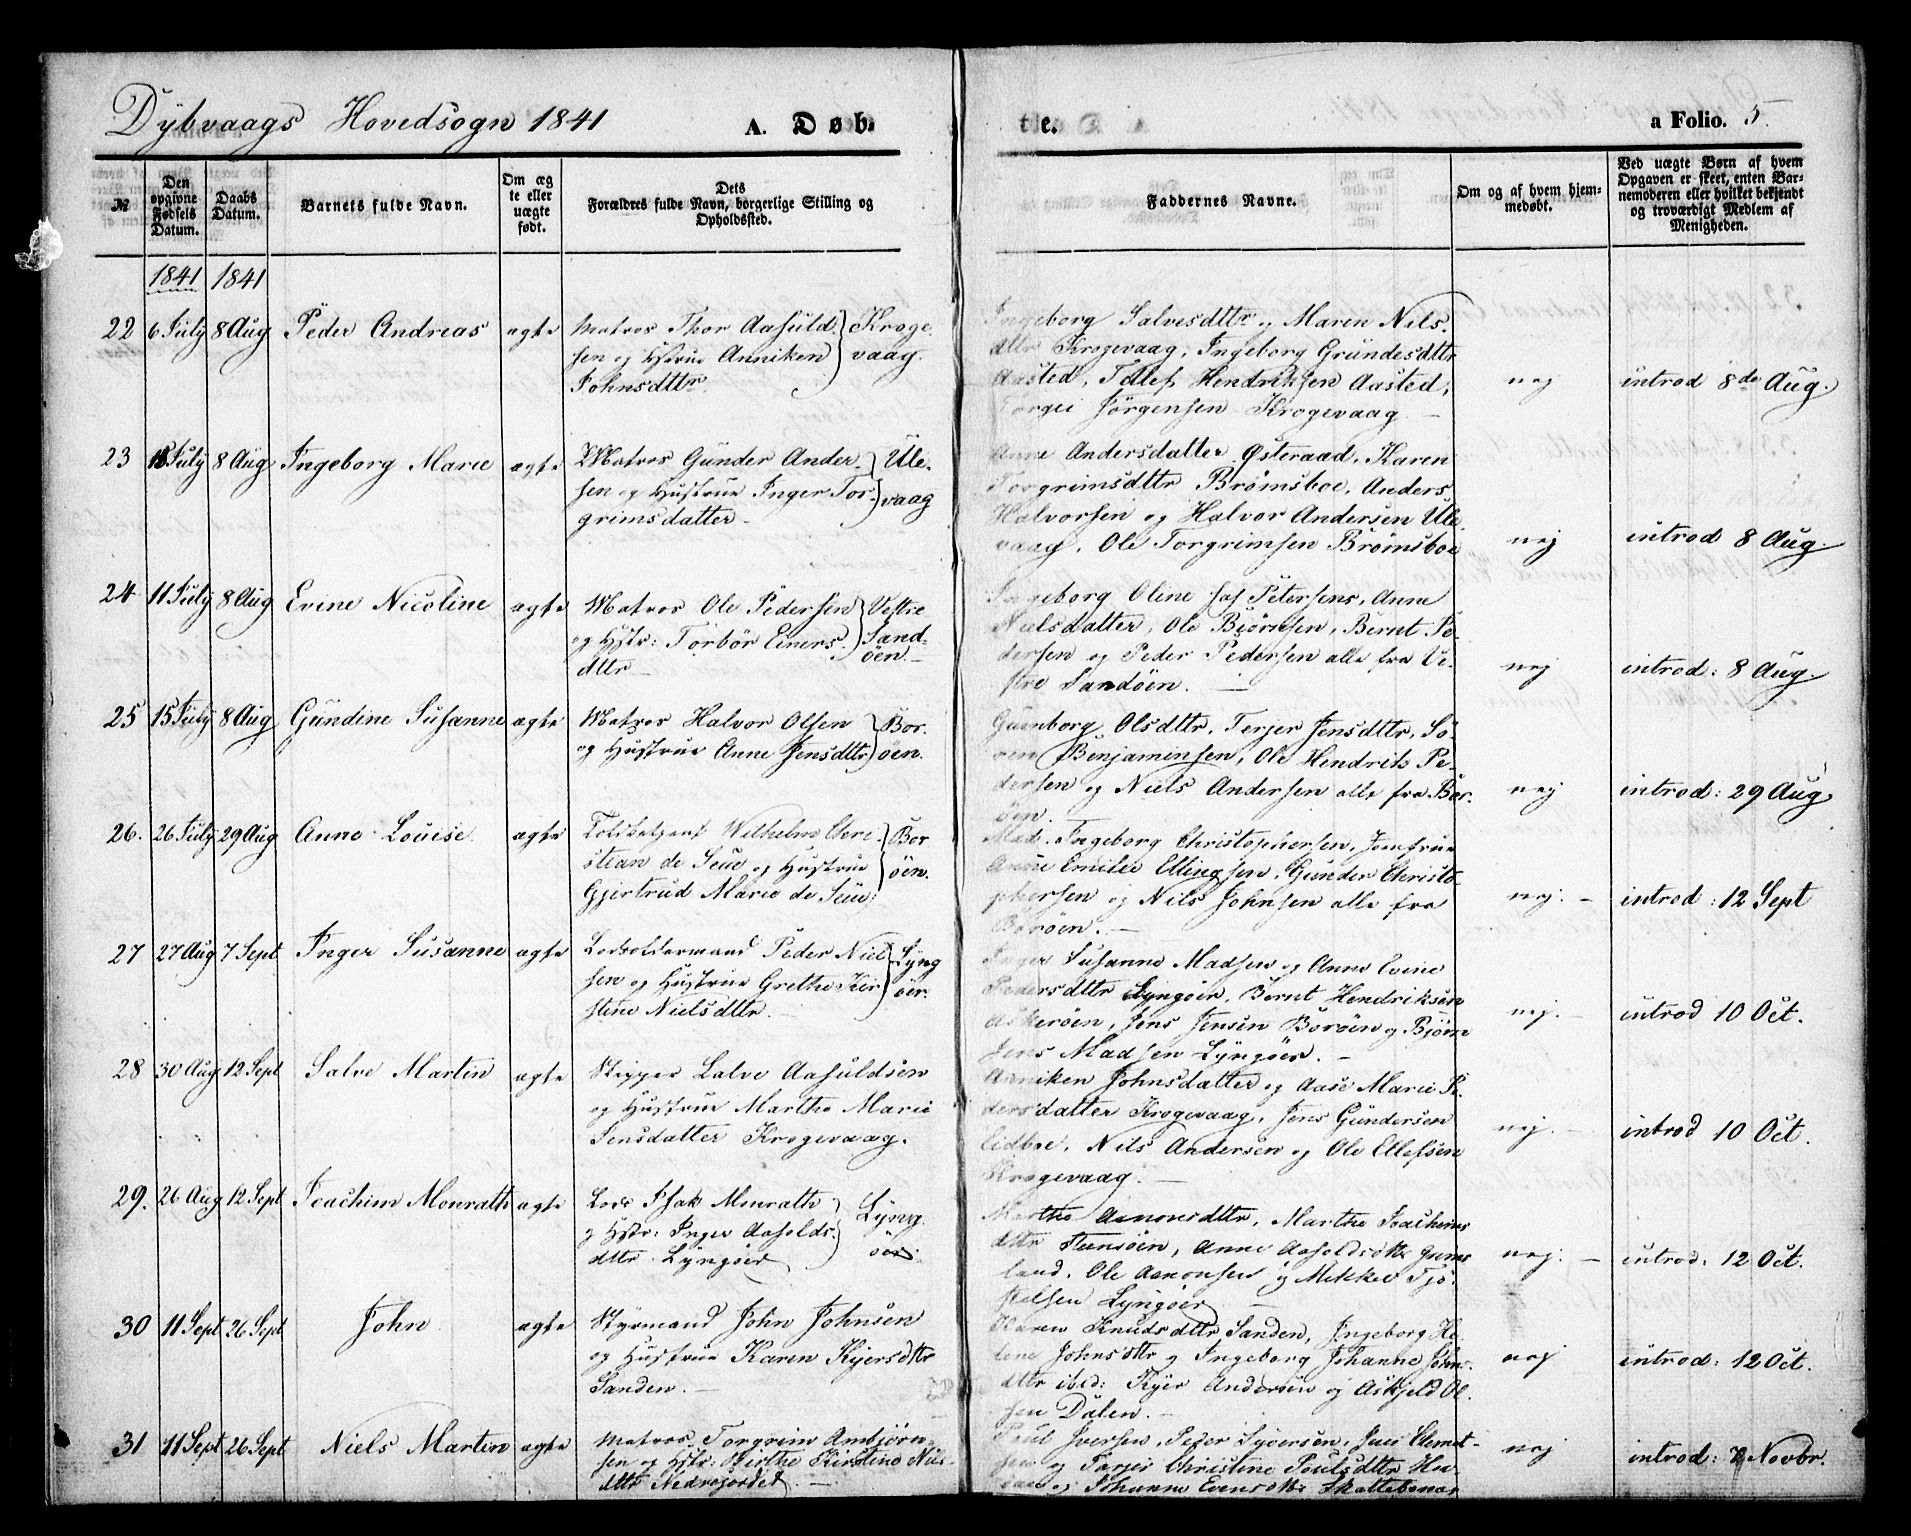 Dÿbvaags Hovedsogn 1841
A. Døb-
te.
a Folio. 5
№
Den opgivne Fødsels Datum.
Daabs Datum.
Barnets fulde Navn.
Om ægte eller uægte født.
Dets Forældres fulde Navn, borgerlige Stilling og Opholdssted.
Faddernes Navne.
Om og af hvem hjemmedøbt.
Ved uægte Børn af hvem Opgaven er skeet, enten Barnemoderen eller hvilket bekjendt og troværdigt Medlem af Menigheden.
1841 1841
22 6 July 8 Aug Peder Andreas ægte
Matros Thor Aasuld-
sen og Hstrue Anniken
Johnsdttr
Kroge-
vaag.
Ingeborg Salvesdttr og Maren Nils
dttr Krogevaag, Ingeborg Gundesdttr
Aasted, Tellef Hendriksen Aasted,
Torgei Jörgensen Krogevaag.
nej
introd 8de Aug.
23 July 8 Aug Ingeborg Marie ægte
Matros Gunder Ander-
sen og Hustrue Inger Tor-
grimsdatter
Ule-
vaag
Anne Andersdatter Østeraad, Karen
Torgrimsdttr Brömsboe, Anders
Halvorsen og Halvor Andersen Ule
vaag, Ole Torgrimsen Brömsboe
nej
introd 8 Aug.
24 11 July 8 Aug Evine Nicoline ægte
Matros Ole Pedersen
og Hstr: Torbör Einers-
dttr
Vestre
Sand-
öen.
Ingeborg Oline Petersens, Anne
Nielsdatter, Ole Biörnsen, Bernt Pe-
dersen og Peder Pedersen alle fra Ve-
stre Sandöen.
nej
introd: 8 Aug.
25 15 July 8 Aug Gundine Susanne ægte
Matros Halvor Olsen
og Hustrue Anne Jensdttr
Bor-
öen.
Guenborg Olsdttr, Terjer Jensdttr, Sö-
ren Benjaminsen, Ole Hendrik Pe-
dersen og Niels Andersen alle fra Bor-
öen.
nej
introd: 29 Aug
26. 26 July 29 Aug Anne Louise. ægte
Toldbetjent Wilhelm Chri-
stian de Seue og Hustrue
Gjertrud Marie de Seue
Bor
öen.
Mad. Ingeborg Christophersen, Jomfrue
Anne Emilie Ellingsen, Gunder Christo-
phersen og Nils Johnsen alle fra
Boröen.
nej.
introd: 12 Sept
27 27 Aug 7 Sept Inger Susanne ægte
Lodsoldermand Peder Niel
sen og Hustrue Grethe Kir
stine Nielsdttr.
Lyng
öer.
Inger Susanne Madsen og Anne Evine
Pedersdttr Lyngöer, Bernt Hendriksen
Askeröen, Jens Jensen Boröen og Björn
Jens Madsen Lyngöer.
nej.
introd 10 Oct.
28 30 Aug 12 Sept Salve Martin ægte
Skipper Salve Aasuldsen
og Hustrue Marthe Marie
Jensdatter Krogevaag.
Anniken Johnsdatter og Aase Marie Pe-
dersdatter Krogevaag, Jens Gundersen
Lidboe, Nils Andersen og Ole Ellefsen
Krogevaag.
nej.
introd 10 Oct.
29. 26 Aug 12 Sept Joachim Monrath ægte
Lods Isak Monrath
og Hstr: Inger Aasolds-
dttr Lyngöer
Lyng
öer.
Marthe Aanonsdttr, Marthe Joachims
dttr Steensöen, Anne Aasoldsdttr
land, Ole Aanonsen og Mikkel Tjö-
stelsen Lyngöer
nej:
introd: 12 Oct.
30 11 Sept 26 Sept John ægte
Styrmand John Johnsen
og Hustrue Karen Kyersdttr
Sanden.
Karen Knudsdttr Sanden, Ingeborg He-
lene Johnsdttr og Ingeborg Johanne John-
dttr ibid: Kyer Andersen og Askjeld Ol-
sen Dalen.
nej
introd: 12 Oct.
31 11 Sept 26 Sept Niels Martin ægte
Matros Torgrim Anbjörn-
sen og Hstr: Birthe Kirstine Niels-
dttr Nedrefjordet
Poul Iversen, Peder Syversen, Jens Clemet-
sen og Torjei Christine Poulsdttr
og Johanne Evensdttr
nej
introd: Novbr.